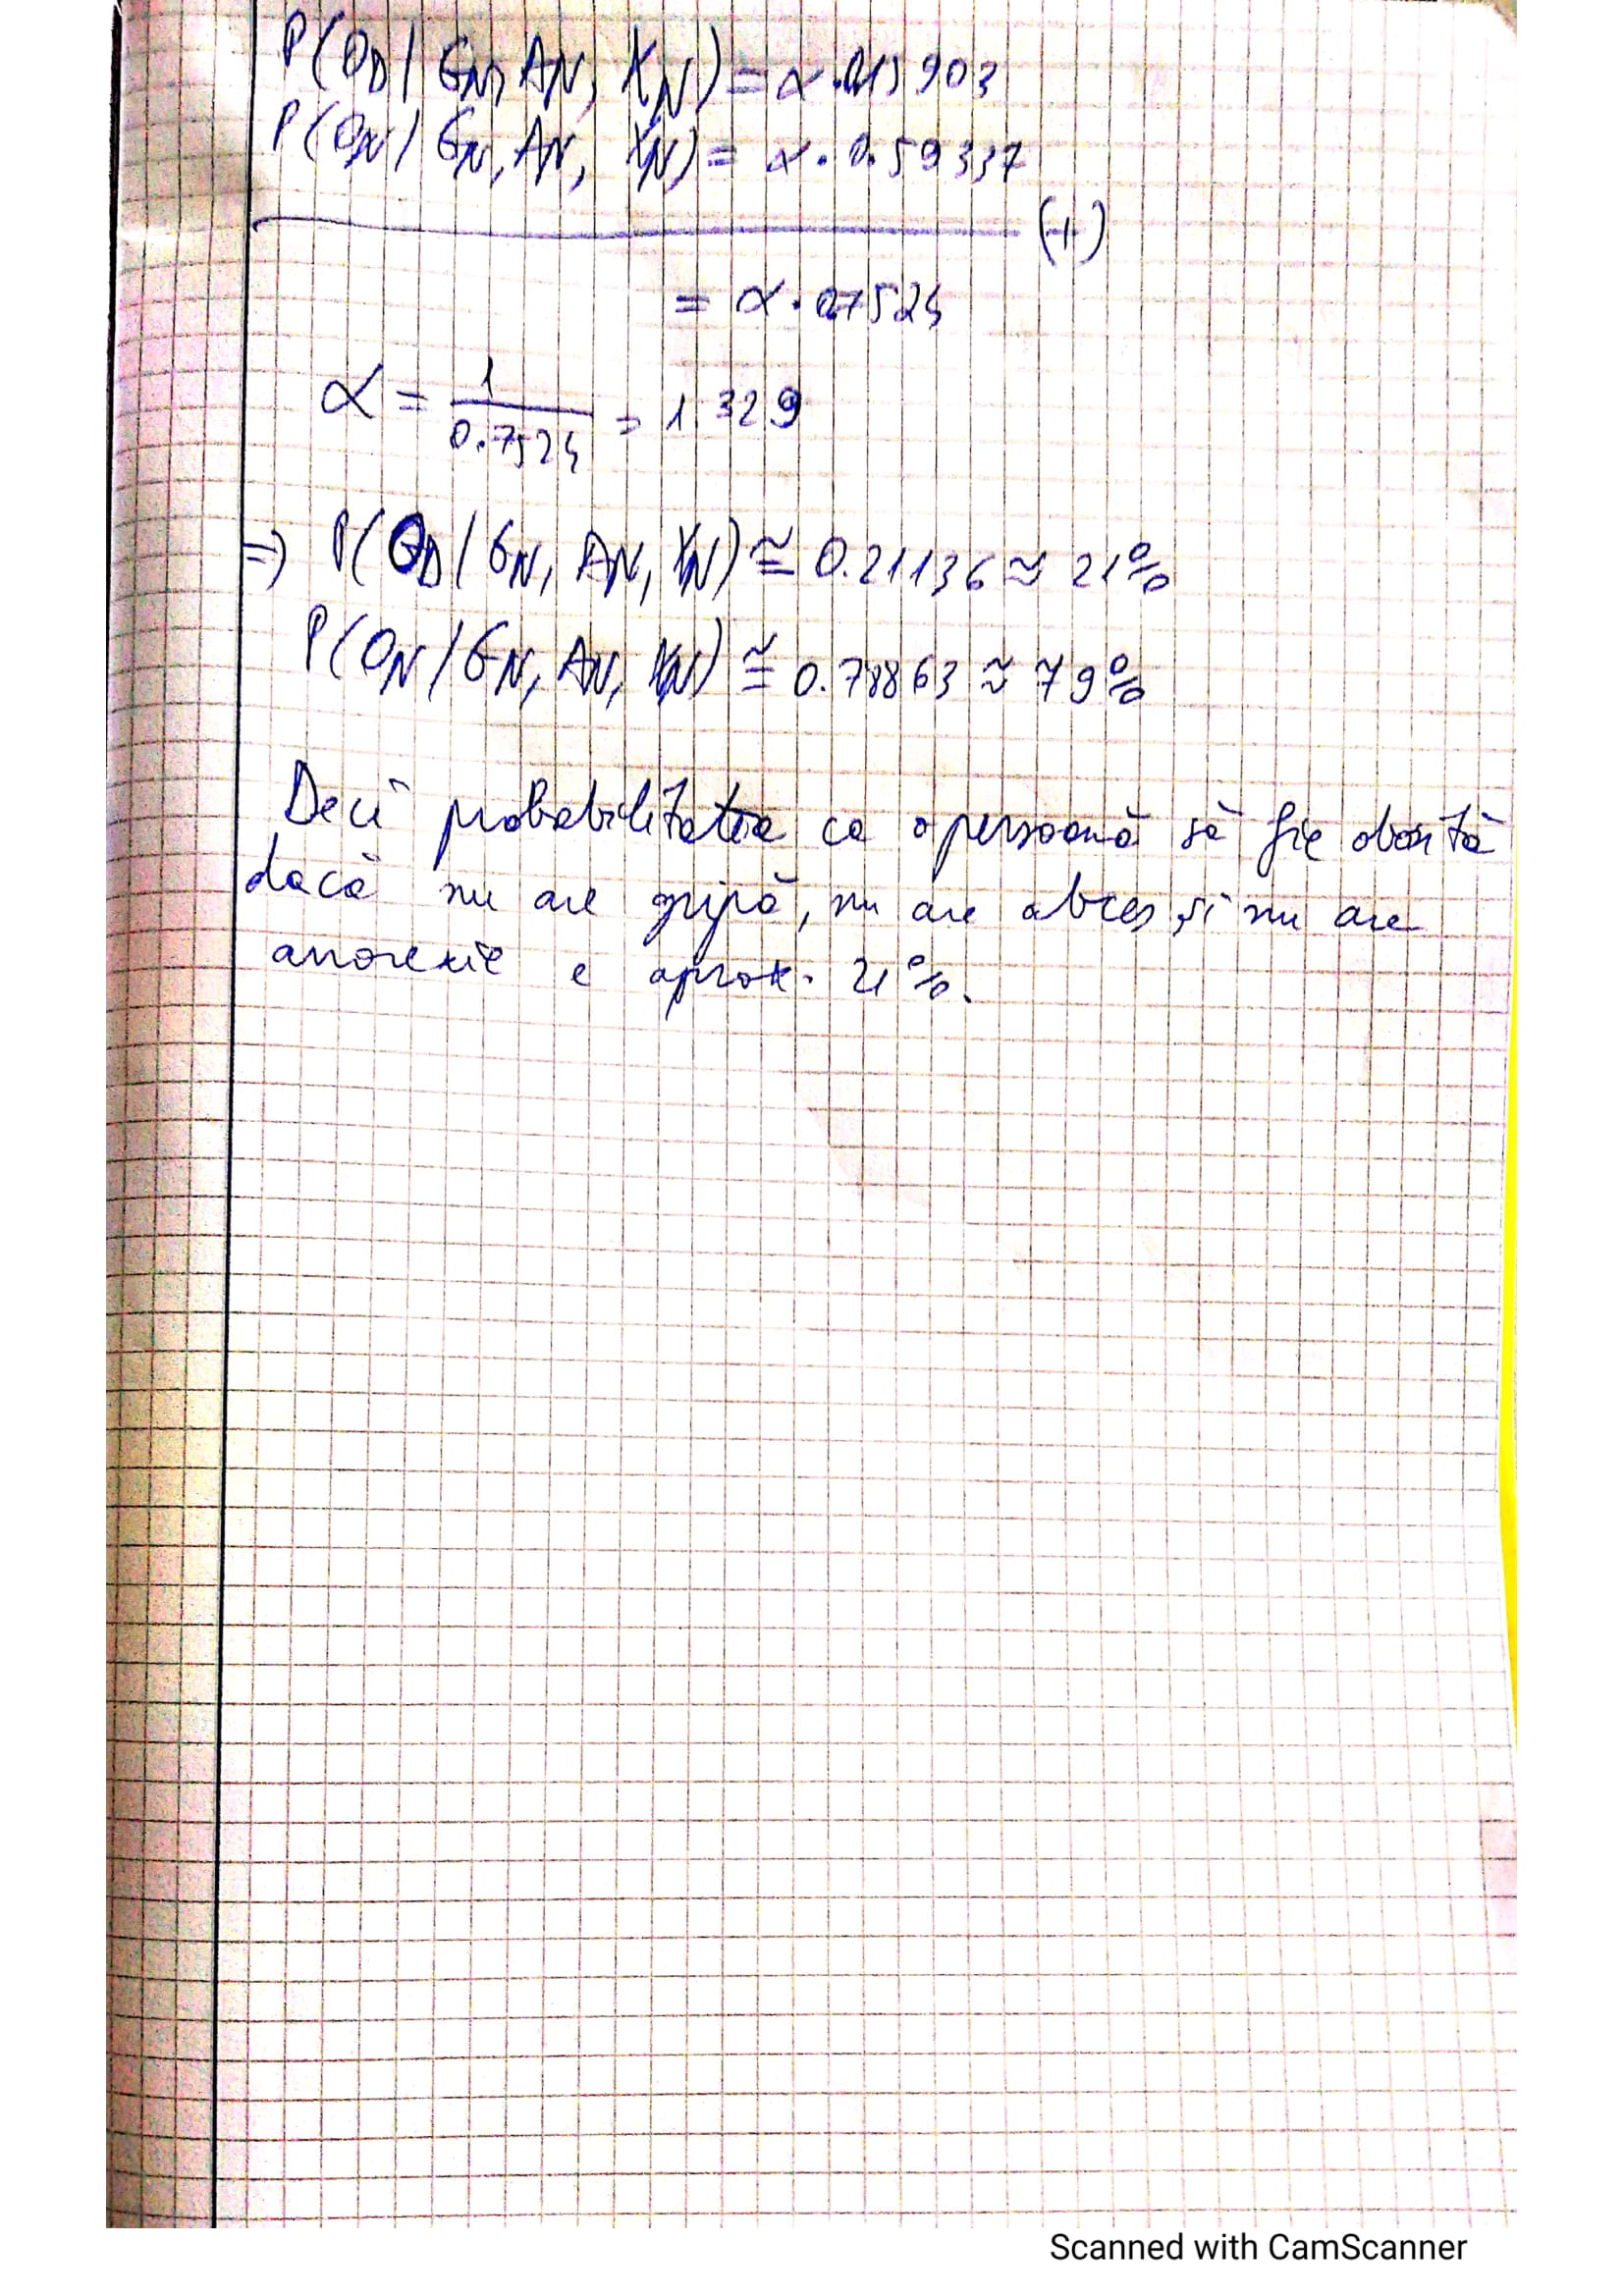 P(O_D / G_N, A_N, X_N) = α · 0.15903
P(O_N / G_N, A_N, X_N) = α · 0.59337
(+)
= α · 0.7524
α = 1/0.7524 = 1.329
=> P(O_D / G_N, A_N, X_N) ≅ 0.21136 ≈ 21%
P(O_N / G_N, A_N, X_N) ≅ 0.78863 ≈ 79%
Deci probabilitatea ca o persoană să fie obosită
dacă nu are gripă, nu are abces și nu are
anorexie e aprox. 21%.
Scanned with CamScanner